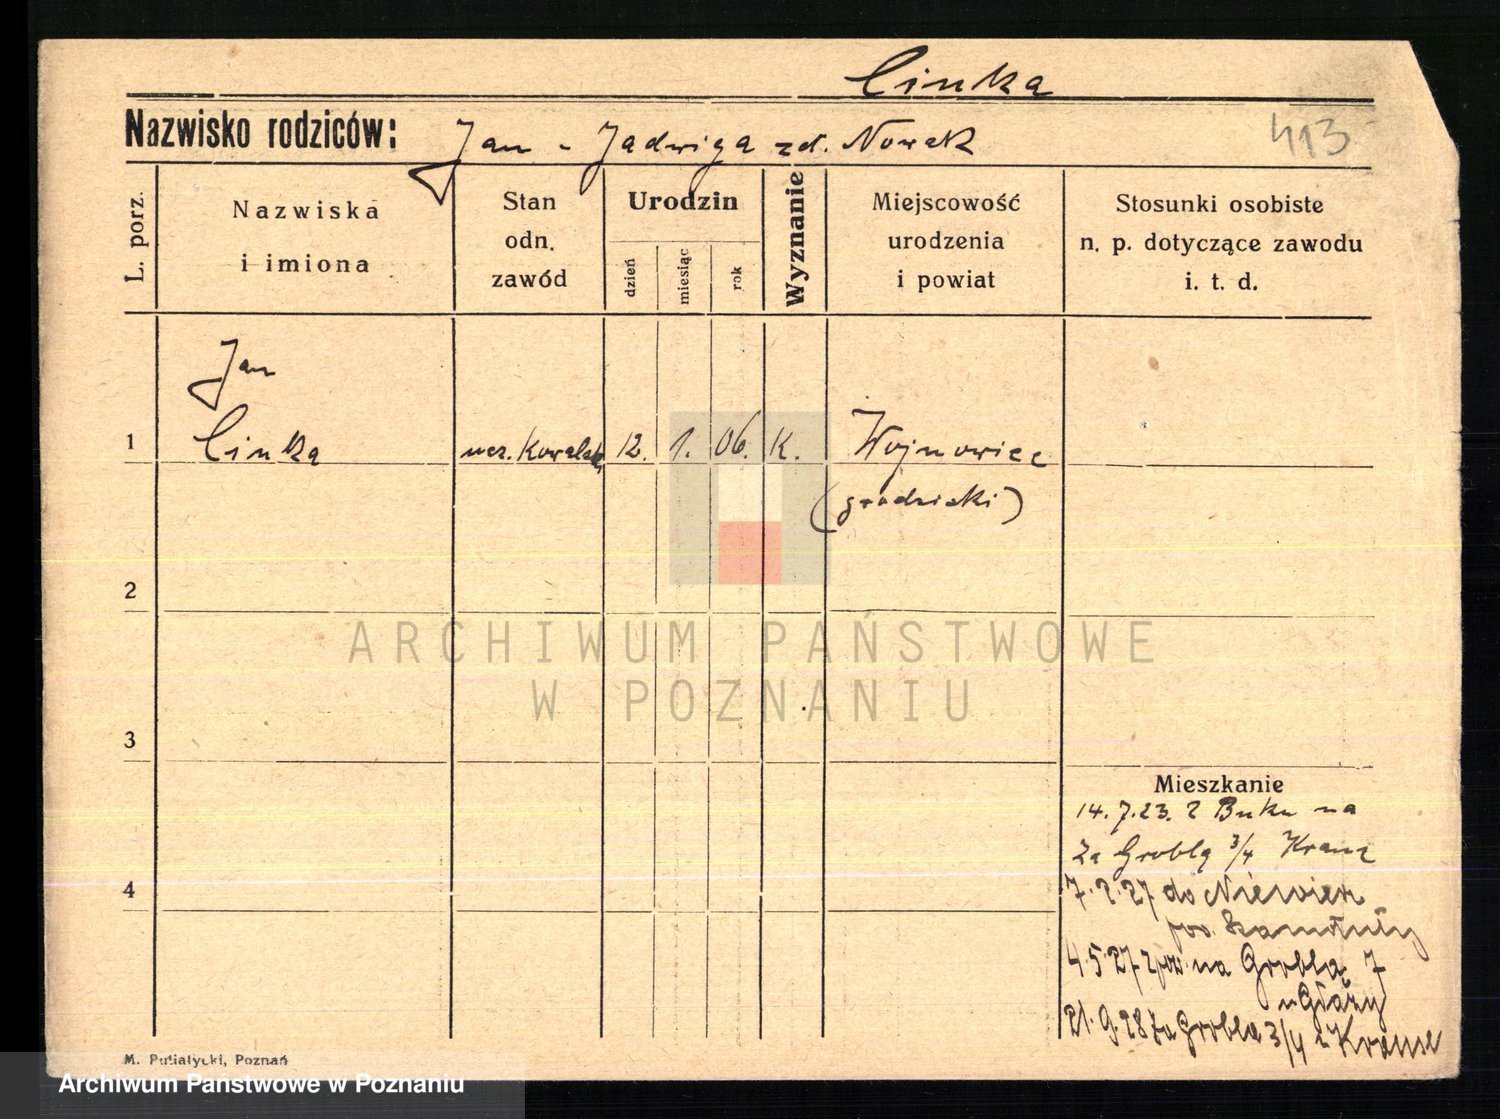 Cinka
Nazwisko rodziców: Jan - Jadwiga zd. Nowak
413
L. porz.
Nazwiska
i imiona
Stan
odn.
zawód
Urodzin
dzień
miesiąc
rok
Wyznanie
Miejscowość
urodzenia
i powiat
Stosunki osobiste
n. p. dotyczące zawodu
i. t. d.
Jan
1 Cinka ucz. Kowalski 12. 1. 06. K. Wojnowice
(grodziski)
2
ARCHIWUM PAŃSTWOWE
W POZNANIU
3
Mieszkanie
14.7.23. z Buku na
Za Groblą 3/4 Kranz
4
7.2.27 do
pow. Szamotuły
4.5.27 na Groblą 7
u
21.9.28 Za Groblą 3/4 u
M. Putiatycki, Poznań
Archiwum Państwowe w Poznaniu